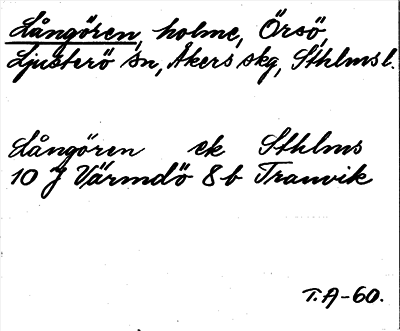 Långören, holme, Örsö,
Ljusterö sn, Åkers skg, Sthlms l.
Långören ek Sthlms
10 J Värmdö 8b Tranvik
T.A-60.